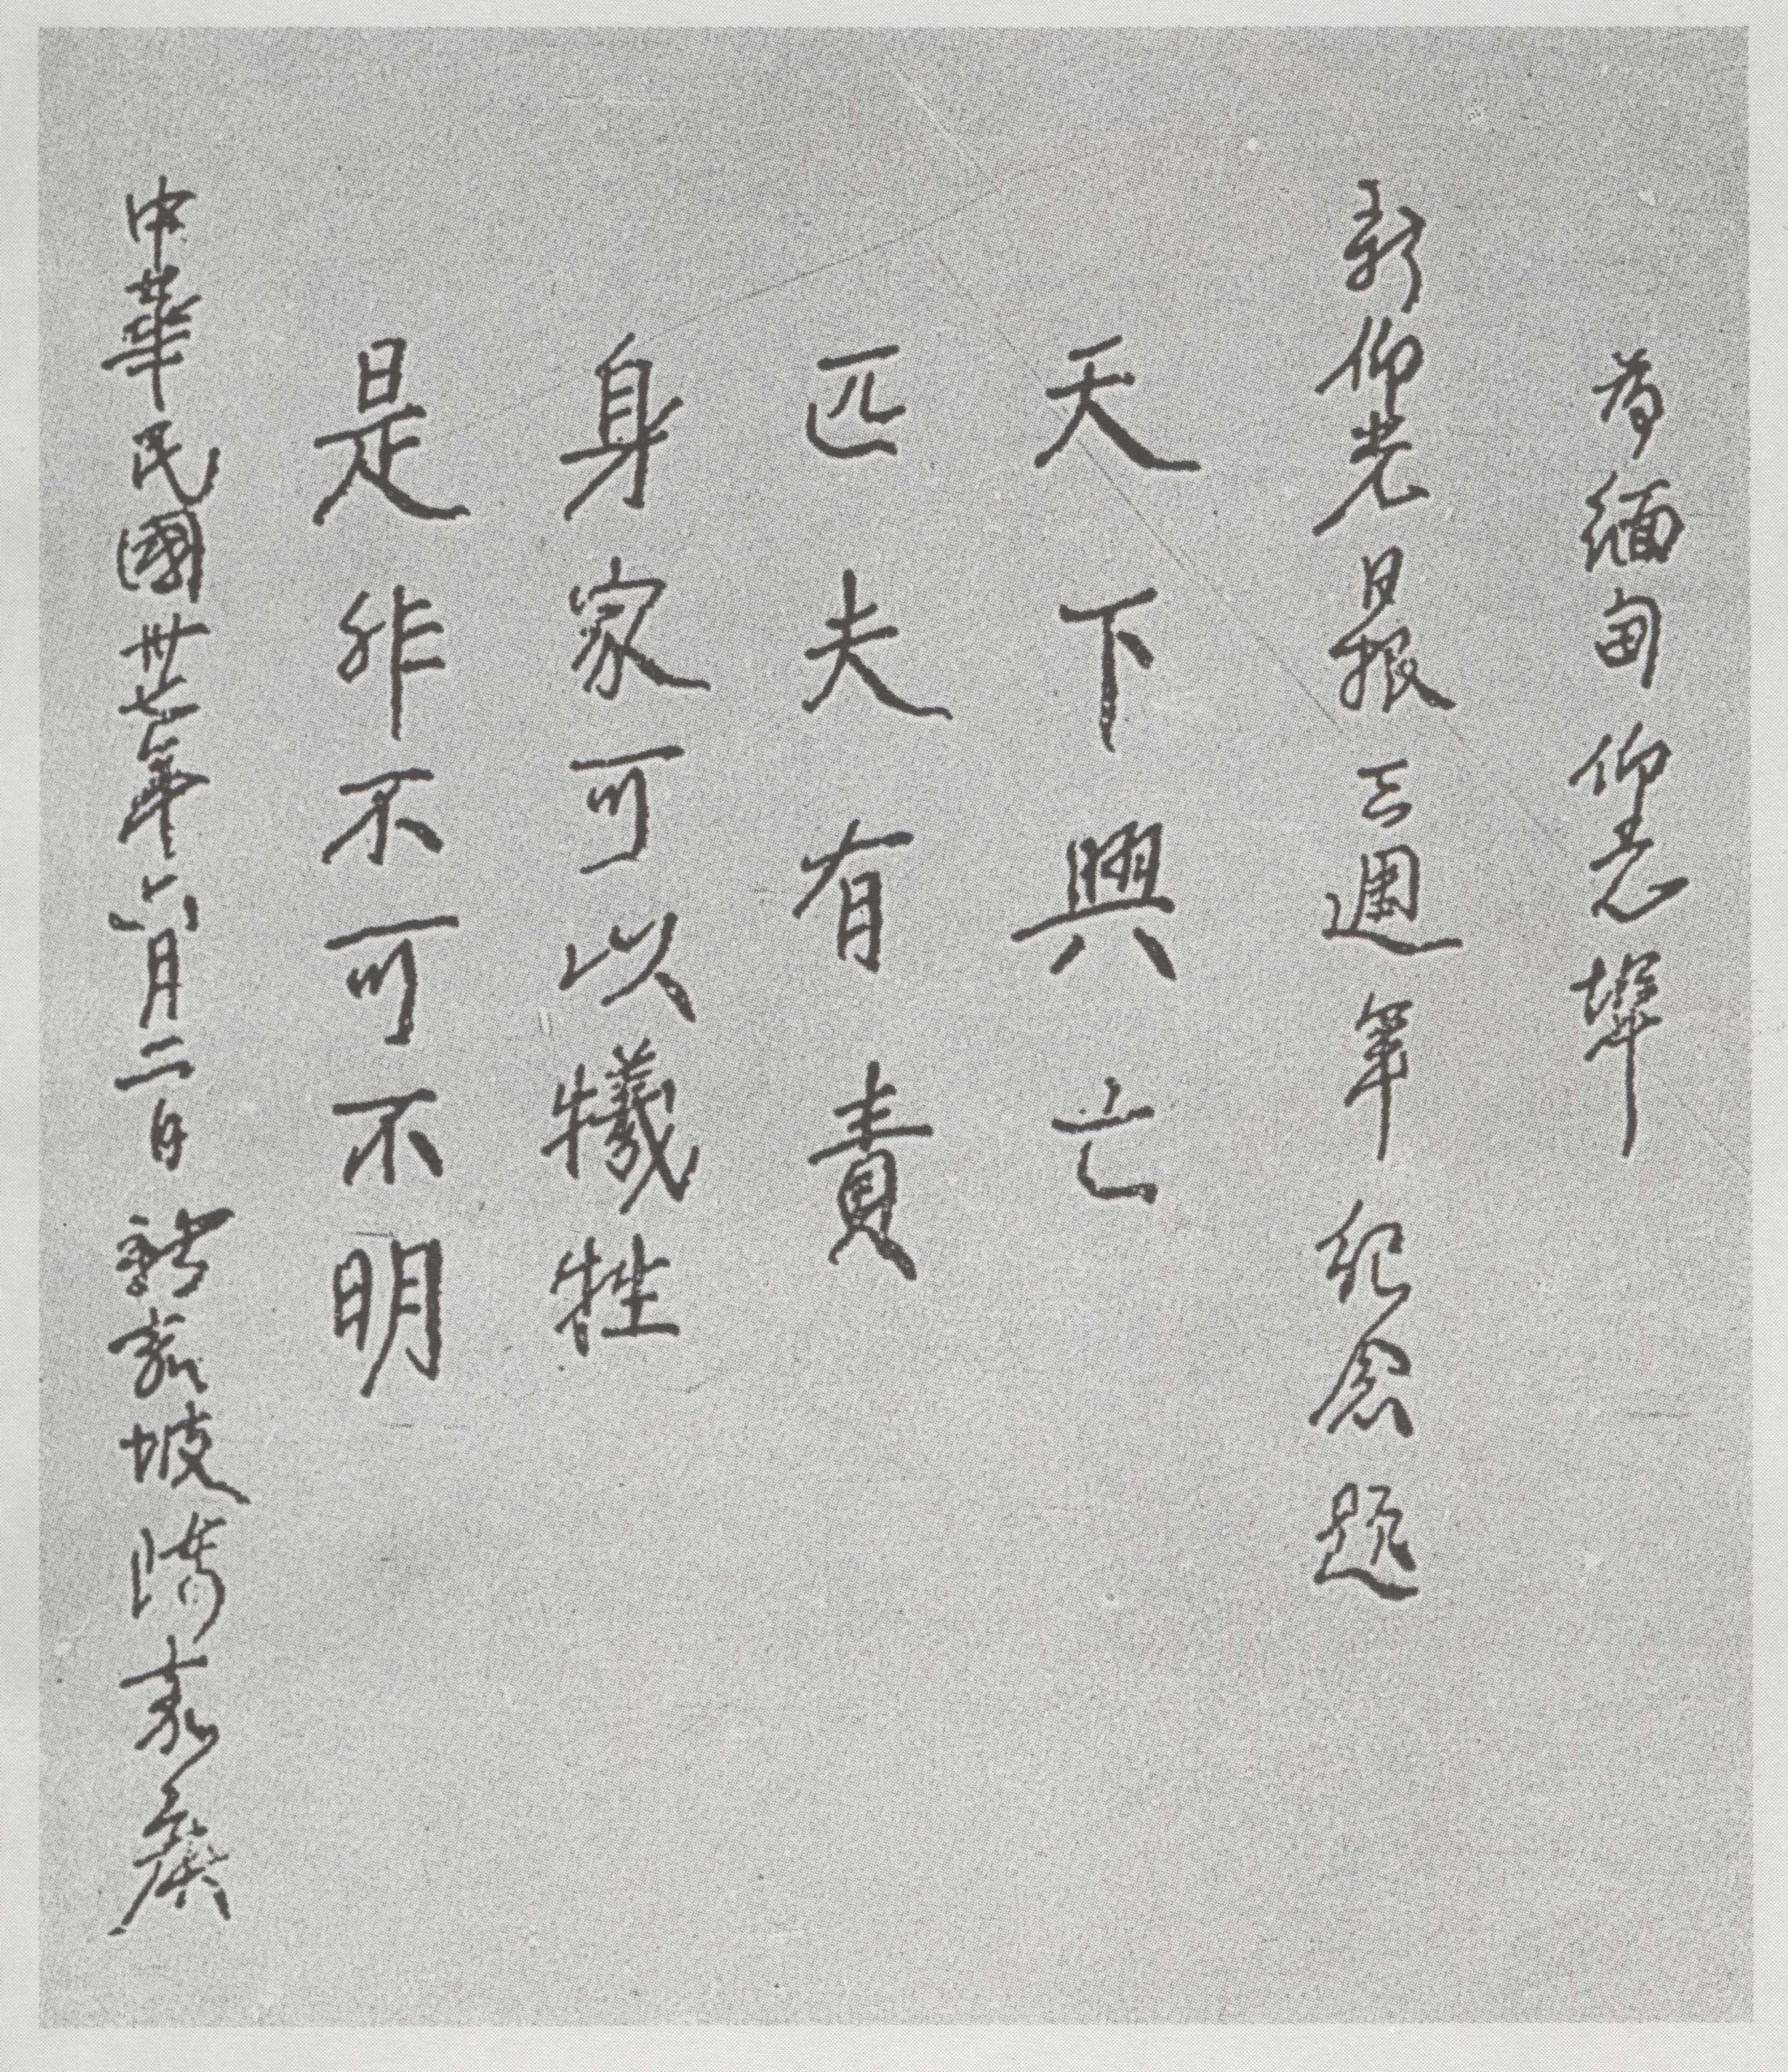 為緬甸仰光埠
新仰光日報三週年紀念題
天下興亡
匹夫有責
身家可以犧牲
是非不可不明
中華民國卅七年六月二日 新嘉坡陳嘉庚